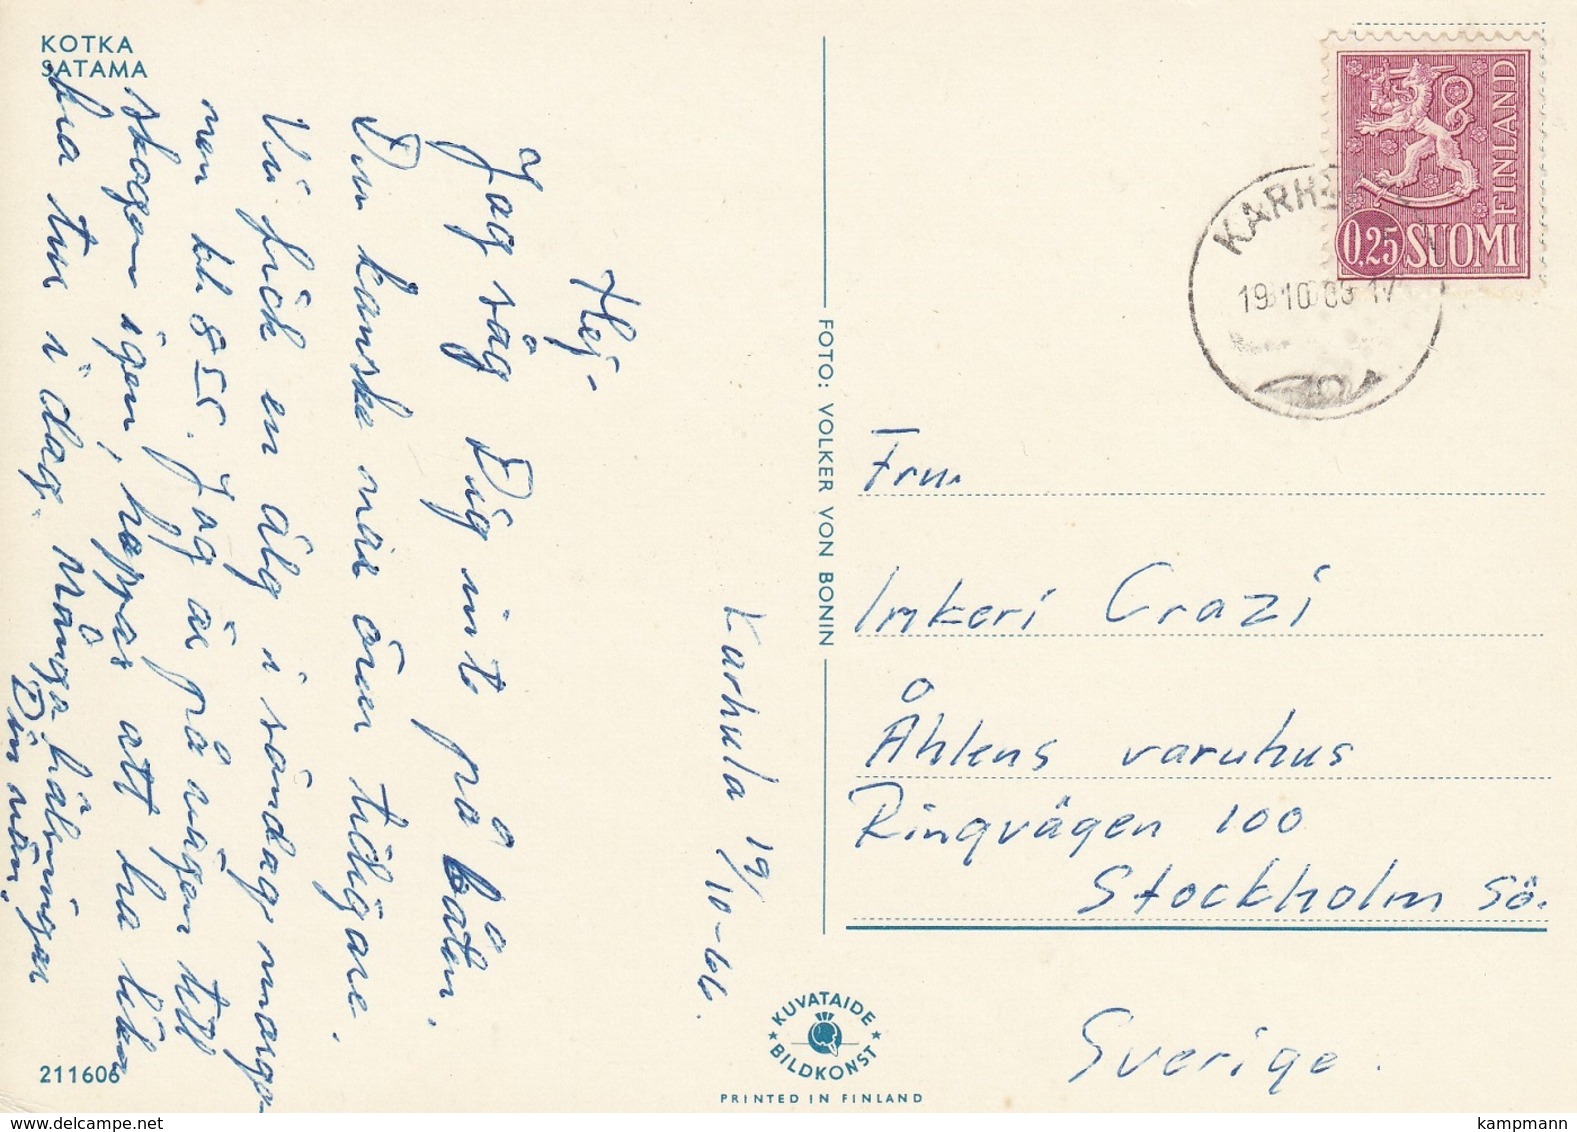 KOTKA
SATAMA
Karhula 19/10-66.
Hej-
Jag såg Dig int på båten.
Du kanske var över tidigare.
Vi fick en älg i söndags morgo-
non kl. 8 55. Jag är på vägen till
skogen igen, hoppas att ha liten
bra tur i dag. Många hälsningar
Din vän.
211606
FOTO: VOLKER VON BONIN
KUVATAIDE
BILDKONST
PRINTED IN FINLAND
KARHU
19.10.66 17
FINLAND
0,25 SUOMI
Fru.
Imkeri Crazi
Åhlens varuhus
Ringvägen 100
Stockholm Sö.
Sverige.
www.delcampe.net
kampmann